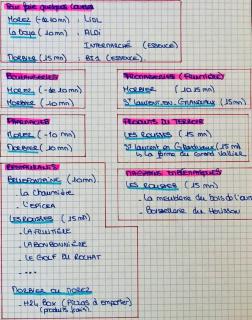 Pour faire quelques courses
MOREZ (-de 10 mn) : LIDL
La Doye (10 mn) : ALDI
INTERMARCHÉ (ESSENCE)
MORBIER (15 mn) : BI1 (ESSENCE).
BOULANGERIES
MOREZ (-de 10 mn)
MORBIER (10 mn)
PHARMACIES
MOREZ (-10 mn)
MORBIER (10 mn)
RESTAURANTS
BELLEFONTAINE (10 mn)
- La Chaumière
- L'EPICEA
LES ROUSSES (15 mn)
- LA FRUITIÈRE
- LA BONBONNIÈRE
- LE GOLF DU ROCHAT
- ....
MORBIER OU MOREZ
- H24 BOX (PIZZAS à emporter)
(produits frais)
FROMAGERIES (FRUITIÈRE)
MORBIER (10 mn)
St LAURENT EN GRANDVAUX (15 mn)
PRODUITS DU TERROIR
LES ROUSSES (15 mn)
St Laurent en Grandvaux (15 mn)
↳ La ferme du Grand Vallier
MAGASINS EMBLÉMATIQUES
LES ROUSSES (15 mn)
- La meublerie du bois de l'ours
- Boissellerie du Hérisson